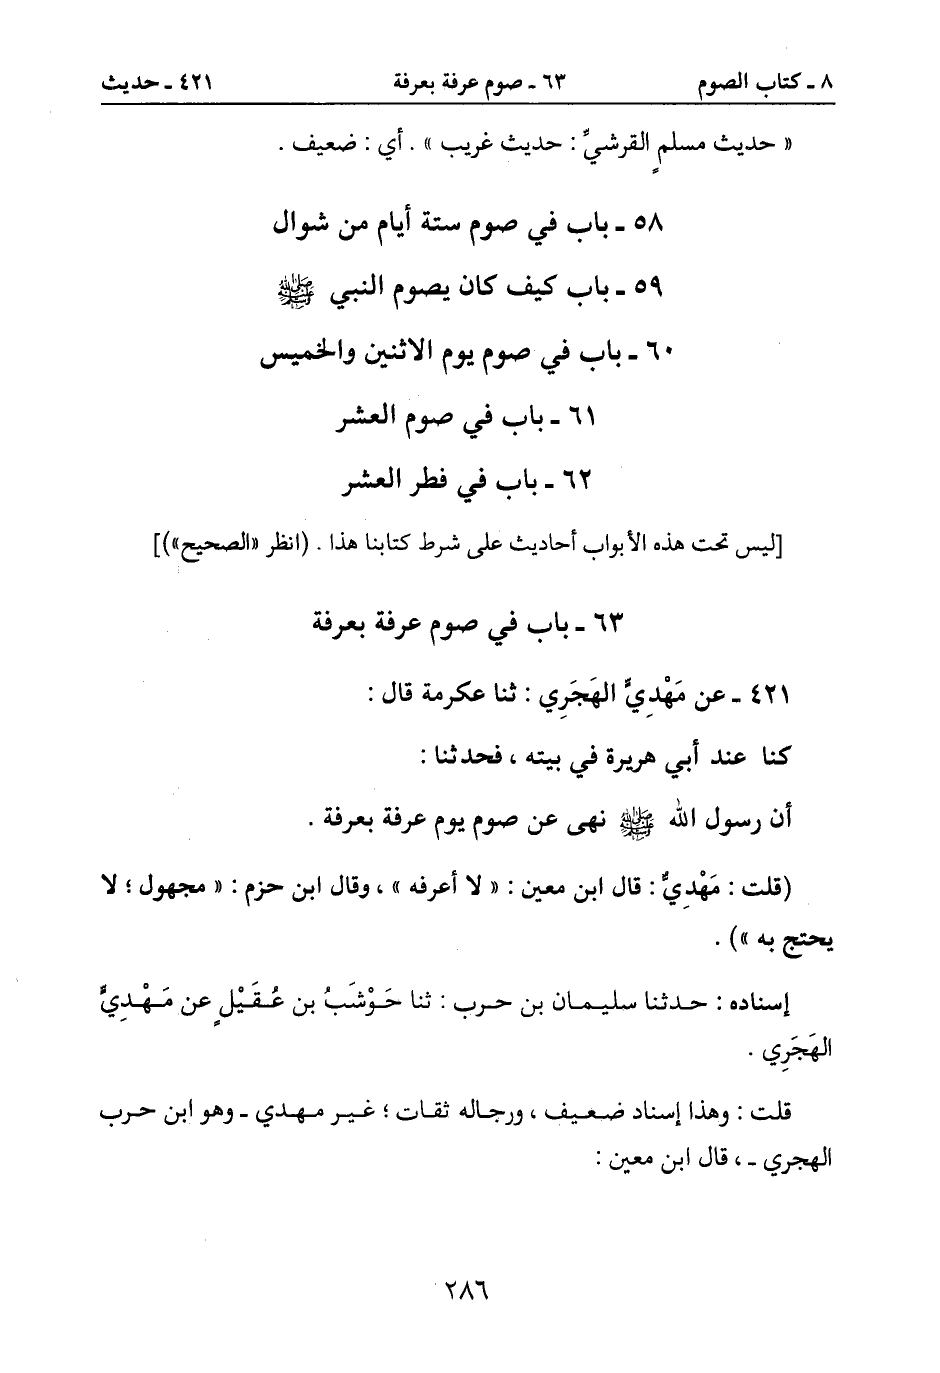 ٨ ـ كتاب الصوم ٦٣ ـ صوم عرفة بعرفة ٤٢١ ـ حديث
« حديث مسلمٍ القرشيِّ : حديث غريب » . أي : ضعيف .
٥٨ ـ باب في صوم ستة أيام من شوال
٥٩ ـ باب كيف كان يصوم النبي ﷺ
٦٠ ـ باب في صوم يوم الاثنين والخميس
٦١ ـ باب في صوم العشر
٦٢ ـ باب في فطر العشر
[ليس تحت هذه الأبواب أحاديث على شرط كتابنا هذا . (انظر «الصحيح»)]
٦٣ ـ باب في صوم عرفة بعرفة
٤٢١ ـ عن مَهْدِيٍّ الهَجَرِي : ثنا عكرمة قال :
كنا عند أبي هريرة في بيته ، فحدثنا :
أن رسول الله ﷺ نهى عن صوم يوم عرفة بعرفة .
(قلت : مَهْدِيٌّ : قال ابن معين : « لا أعرفه » ، وقال ابن حزم : « مجهول ؛ لا
يحتج به ») .
إسناده : حدثنا سليمان بن حرب : ثنا حَوْشَبُ بن عُقَيْلٍ عن مَهْدِيٍّ
الهَجَرِي .
قلت : وهذا إسناد ضعيف ، ورجاله ثقات ؛ غير مهدي ـ وهو ابن حرب
الهجري ـ ، قال ابن معين :
٢٨٦